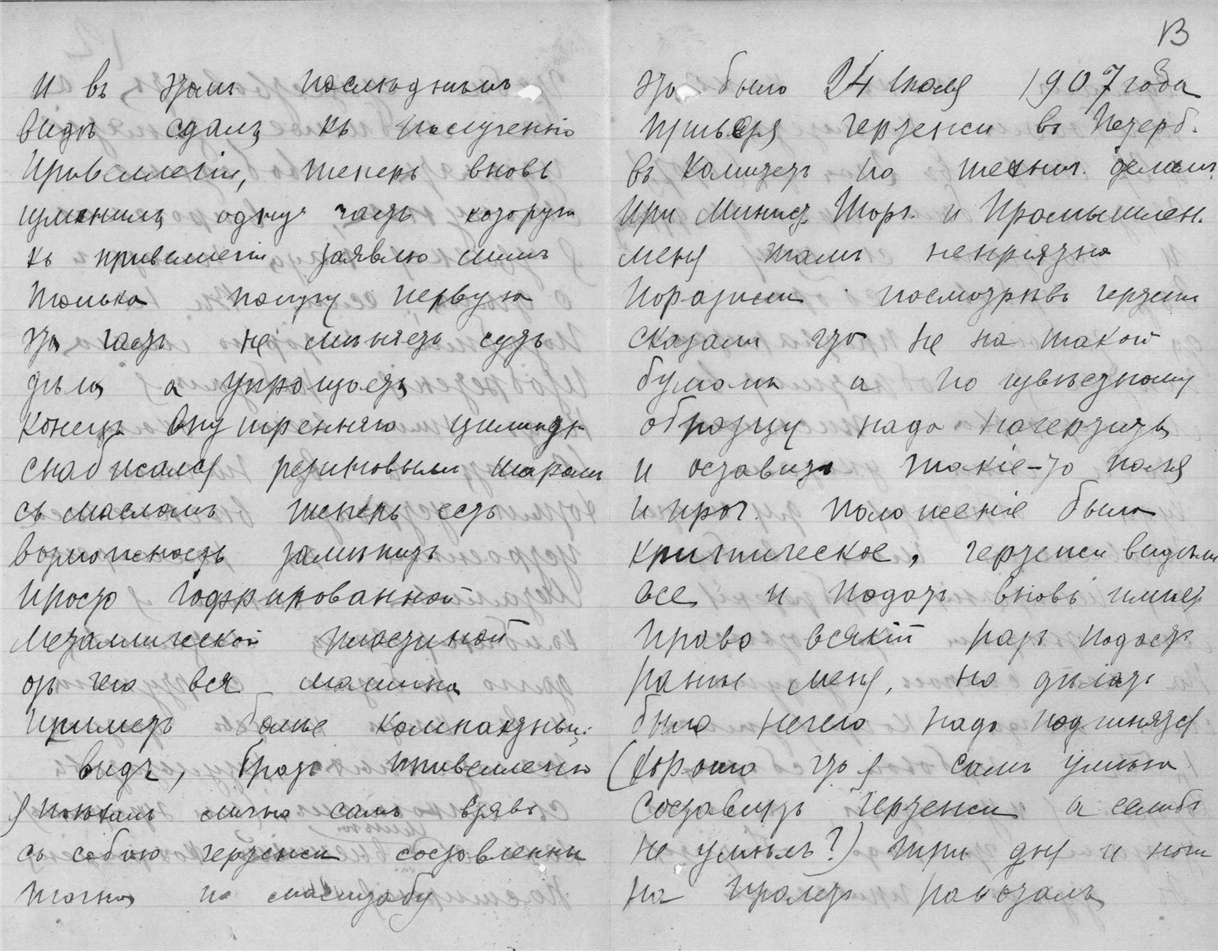 И въ этомъ последнемъ
виде сдалъ къ получению
Привеллегіи, теперь вновь
изменилъ одну часть которую
къ привеллегіи заявлю лишь
только получу первую
эта часть не меняетъ суть
дела а упрощаетъ
конецъ внутренняго цилиндр
снабжался резиновымъ шаромъ
съ масломъ теперь есть
возможность заменить
просто Гофрированной
металлической пластиной
отъ чего вся машина
приметъ более компактный
видъ, брать привеллегію
я поехалъ лично самъ взявъ
съ собою чертежи составленны
точно по масштабу
13
Это было 24 Июля 1907 года
Привезя чертежи въ Петерб.
въ Комитетъ по технич. деламъ
При Минист. Торг. и Промышлен.
меня тамъ непріязно
Поразили посмотревъ чертежи
сказали что не на такой
бумаге а по
образцу надо начертить
и оставить такіе-то поля
и проч. Положеніе было
критическое, чертежи видели
все и подать вновь имеетъ
право всякій разъ подастъ
раньше меня, но делать
было нечего надо подчиняться
(хорошо что я самъ умелъ
составить Чертежи а еслибъ
не умелъ?) три дня и ночи
на пролетъ работалъ